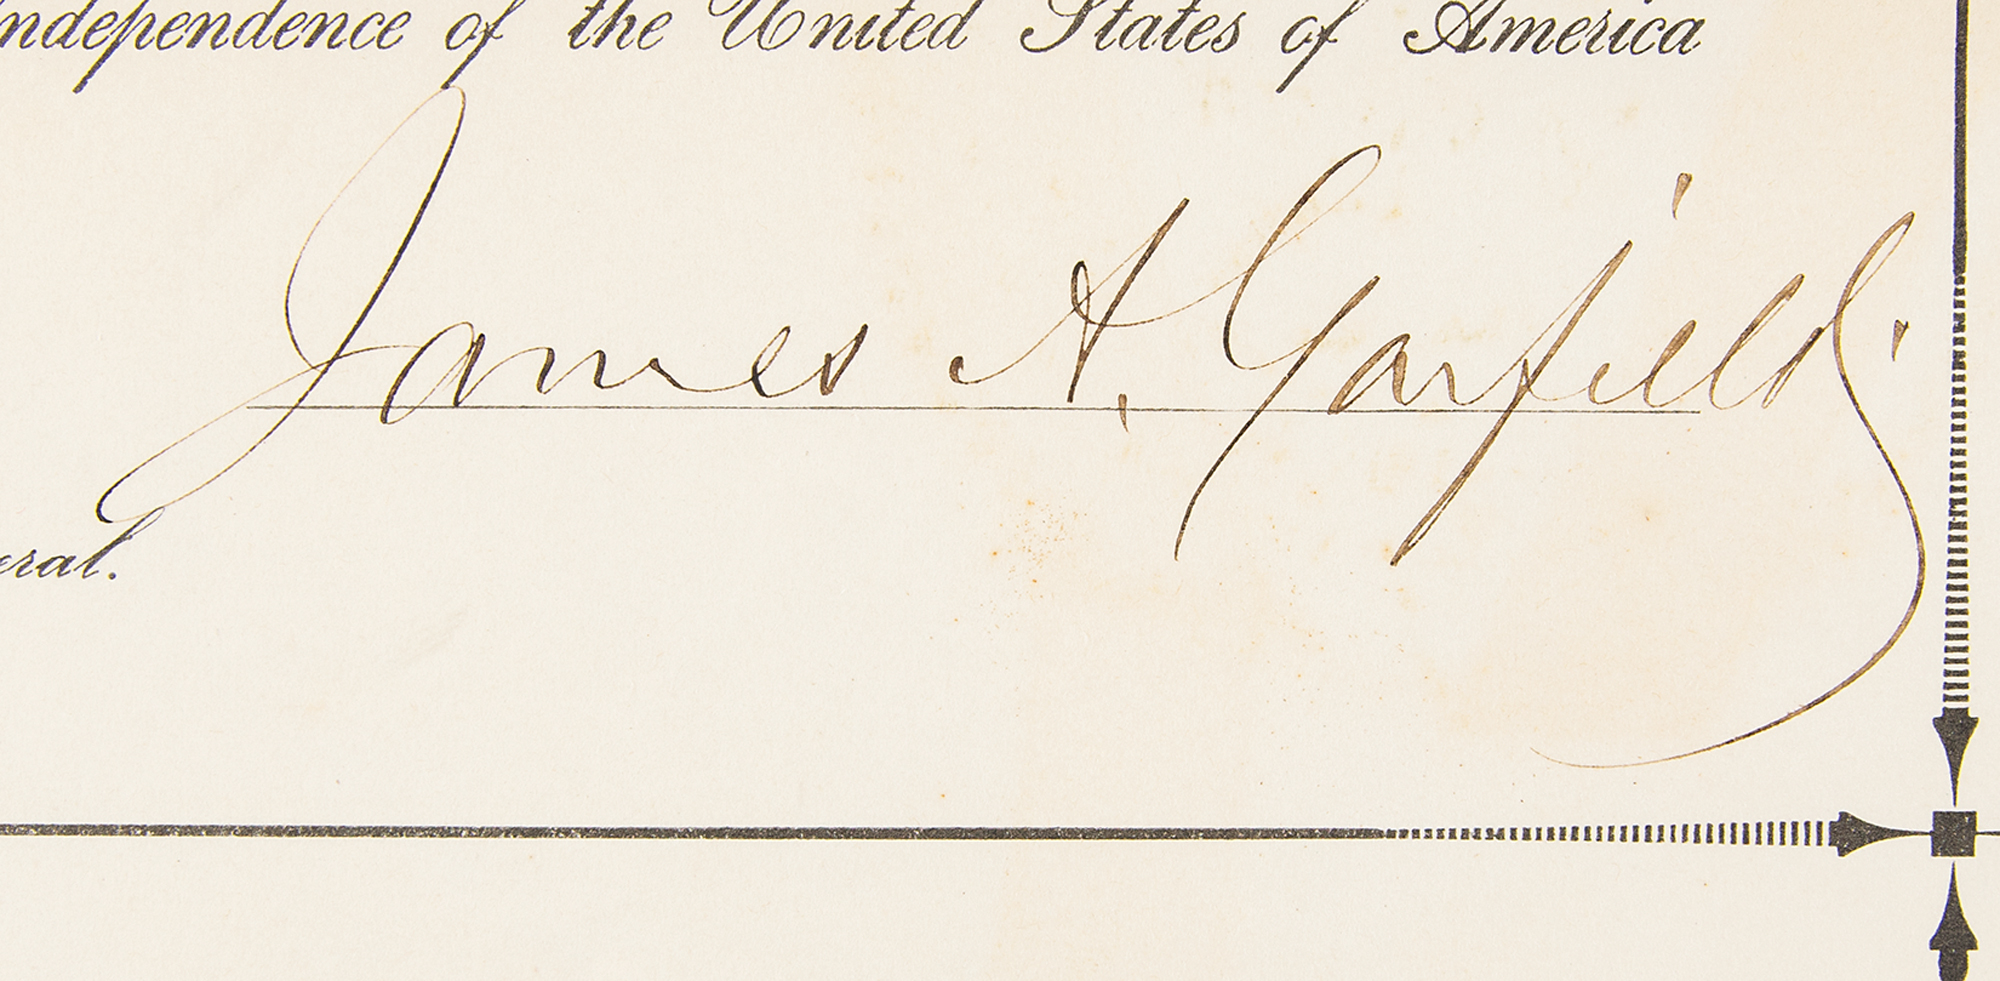 ndependence of the United States of America
James A. Garfield.
eral.